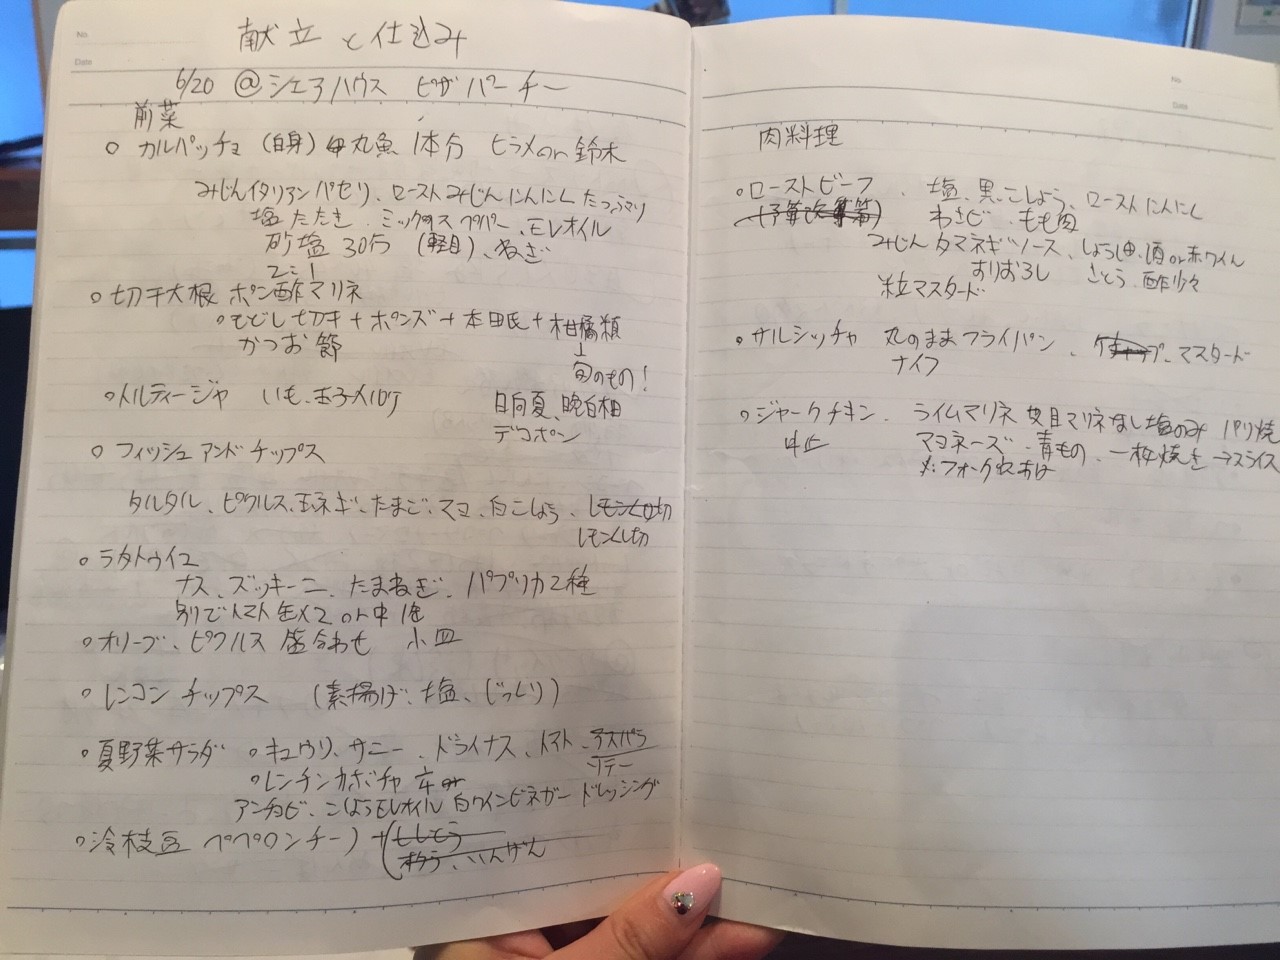 No
Date
献立と仕込み
6/20 @シェアハウス ピザパーチー
前菜
○ カルパッチョ (白身) 丸魚 1本分 ヒラメor 鈴木
みじんイタリアンパセリ、ローストみじんにんにくたっぷり
塩たたき、ミックスペパー、EVオイル
砂塩 30分 (軽目)、ねぎ
2:1
○ 切干大根 ポン酢マリネ
○もどし切干+ポンズ+本田氏+柑橘類
かつお節
↓
旬のもの!
○トルティージャ いも、玉子
日向夏、晩白柚
デコポン
○ フィッシュアンドチップス
タルタル、ピクルス、玉ネギ、たまご、マヨ、白こしょう、
レモンくし切
○ ラタトゥイユ
ナス、ズッキーニ、たまねぎ、パプリカ2種
別でトマト缶×2 or 中1缶
○オリーブ、ピクルス 盛合わせ 小皿
○レンコンチップス (素揚げ、塩、じっくり)
○夏野菜サラダ ○キュウリ、サニー、ドライナス、トマト、アスパラ
ソテー
○レンチンカボチャ
アンチョビ、こしょうEVオイル 白ワインビネガー ドレッシング
○冷枝豆 ペペロンチーノ +(ししとう
オクラ、いんげん
No
Date
肉料理
○ローストビーフ、塩、黒こしょう、ローストにんにく
わさび、もも肉
みじんタマネギソース、しょう油、酒or赤ワイン
すりおろし さとう、酢少々
粒マスタード
○サルシッチャ 丸のままフライパン、ケチャップ、マスタード
ナイフ
○ジャークチキン、ライムマリネ 皮目マリネなし塩のみ パリ焼
中止 マヨネーズ、青もの、一枚焼き→スライス